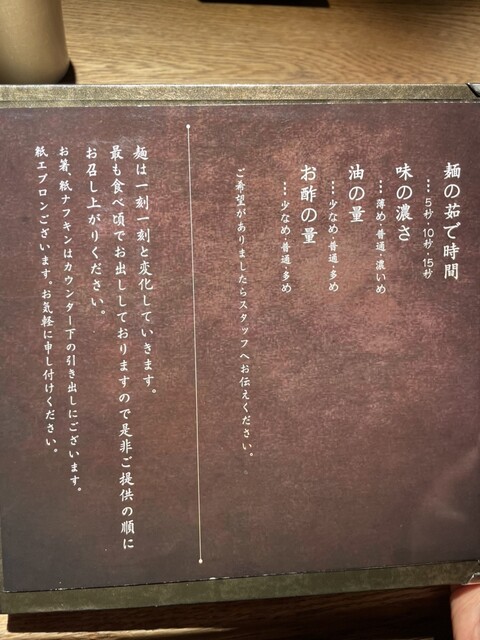 麺の茹で時間
…5秒・10秒・15秒
味の濃さ
…薄め・普通・濃いめ
油の量
…少なめ・普通・多め
お酢の量
…少なめ・普通・多め
ご希望がありましたらスタッフへお伝えください。
麺は一刻一刻と変化していきます。
最も食べ頃でお出ししておりますので是非ご提供の順に
お召し上がりください。
お箸、紙ナフキンはカウンター下の引き出しにございます。
紙エプロンございます。お気軽に申し付けください。